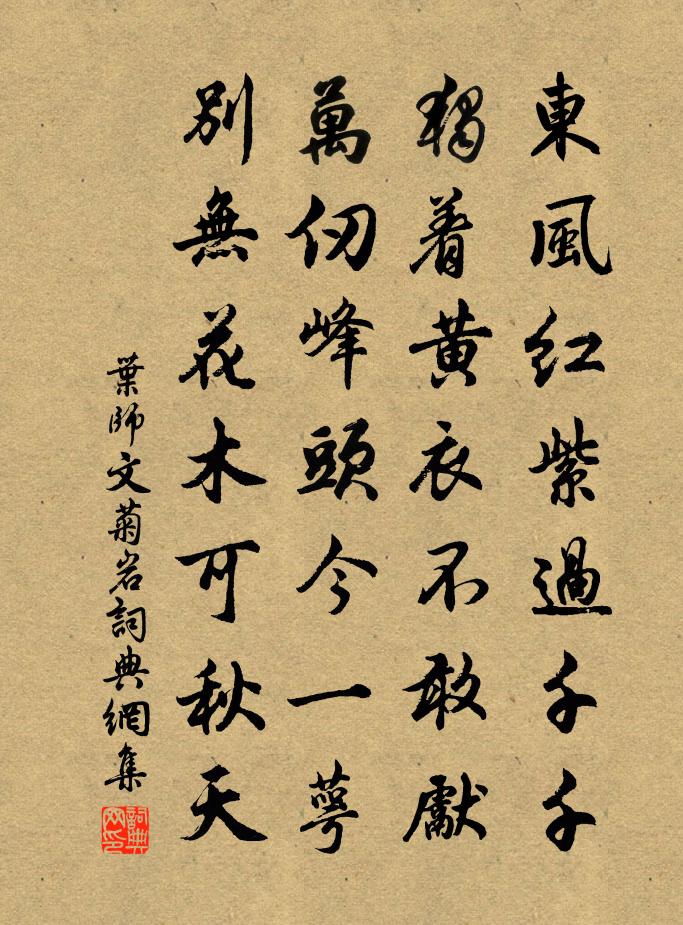 東風紅紫過千千
獨着黃衣不敢獻
萬仞峰頭今一萼
別無花木可秋天
葉師文菊岩詞典網集
詞典网印